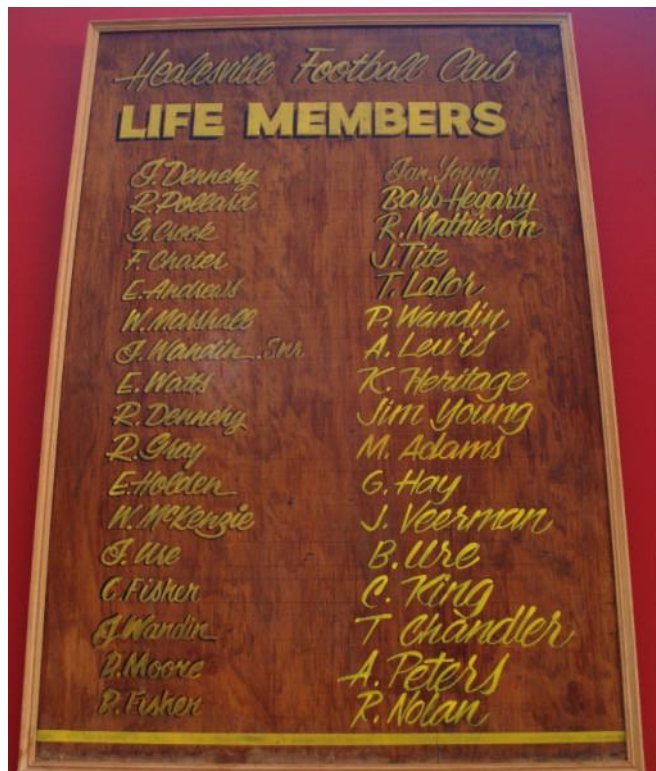 Healesville Football Club
LIFE MEMBERS
J. Dennehy
R. Pollard
G. Crook
F. Chater
E. Andrews
W. Marshall
J. Wandin. Snr
E. Watts
R. Dennehy
R. Gray
E. Holden
W. McKenzie
J. Ure
C. Fisher
J. Wandin
D. Moore
D. Fisher
Jan. Young
Barb Hegarty
R. Mathieson
J. Tite
T. Lalor
P. Wandin
A. Lewis
K. Heritage
Jim Young
M. Adams
G. Hay
J. Veerman
B. Ure
C. King
T Chandler
A. Peters
R. Nolan